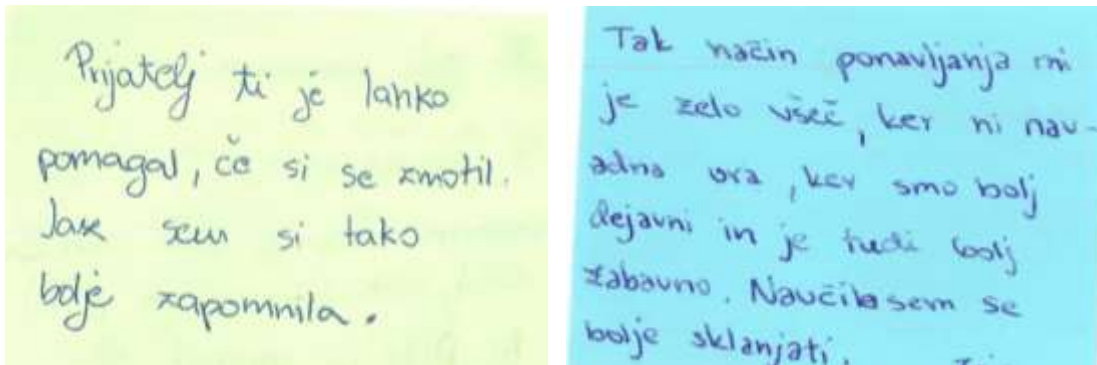 Prijatelj ti je lahko
pomagal, če si se zmotil.
Jaz sem si tako
bolje zapomnila.
Tak način ponavljanja mi
je zelo všeč, ker ni nav-
adna ura, ker smo bolj
dejavni in je tudi bolj
zabavno. Naučila sem se
bolje sklanjati.